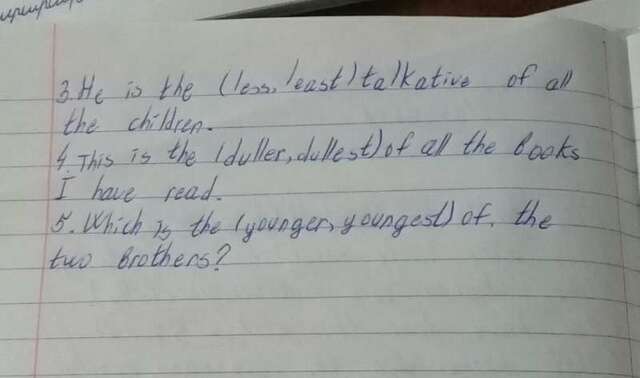 3. He is the (less, least) talkative of all
the children.
4. This is the (duller, dullest) of all the books
I have read.
5. Which is the (younger, youngest) of the
two brothers?